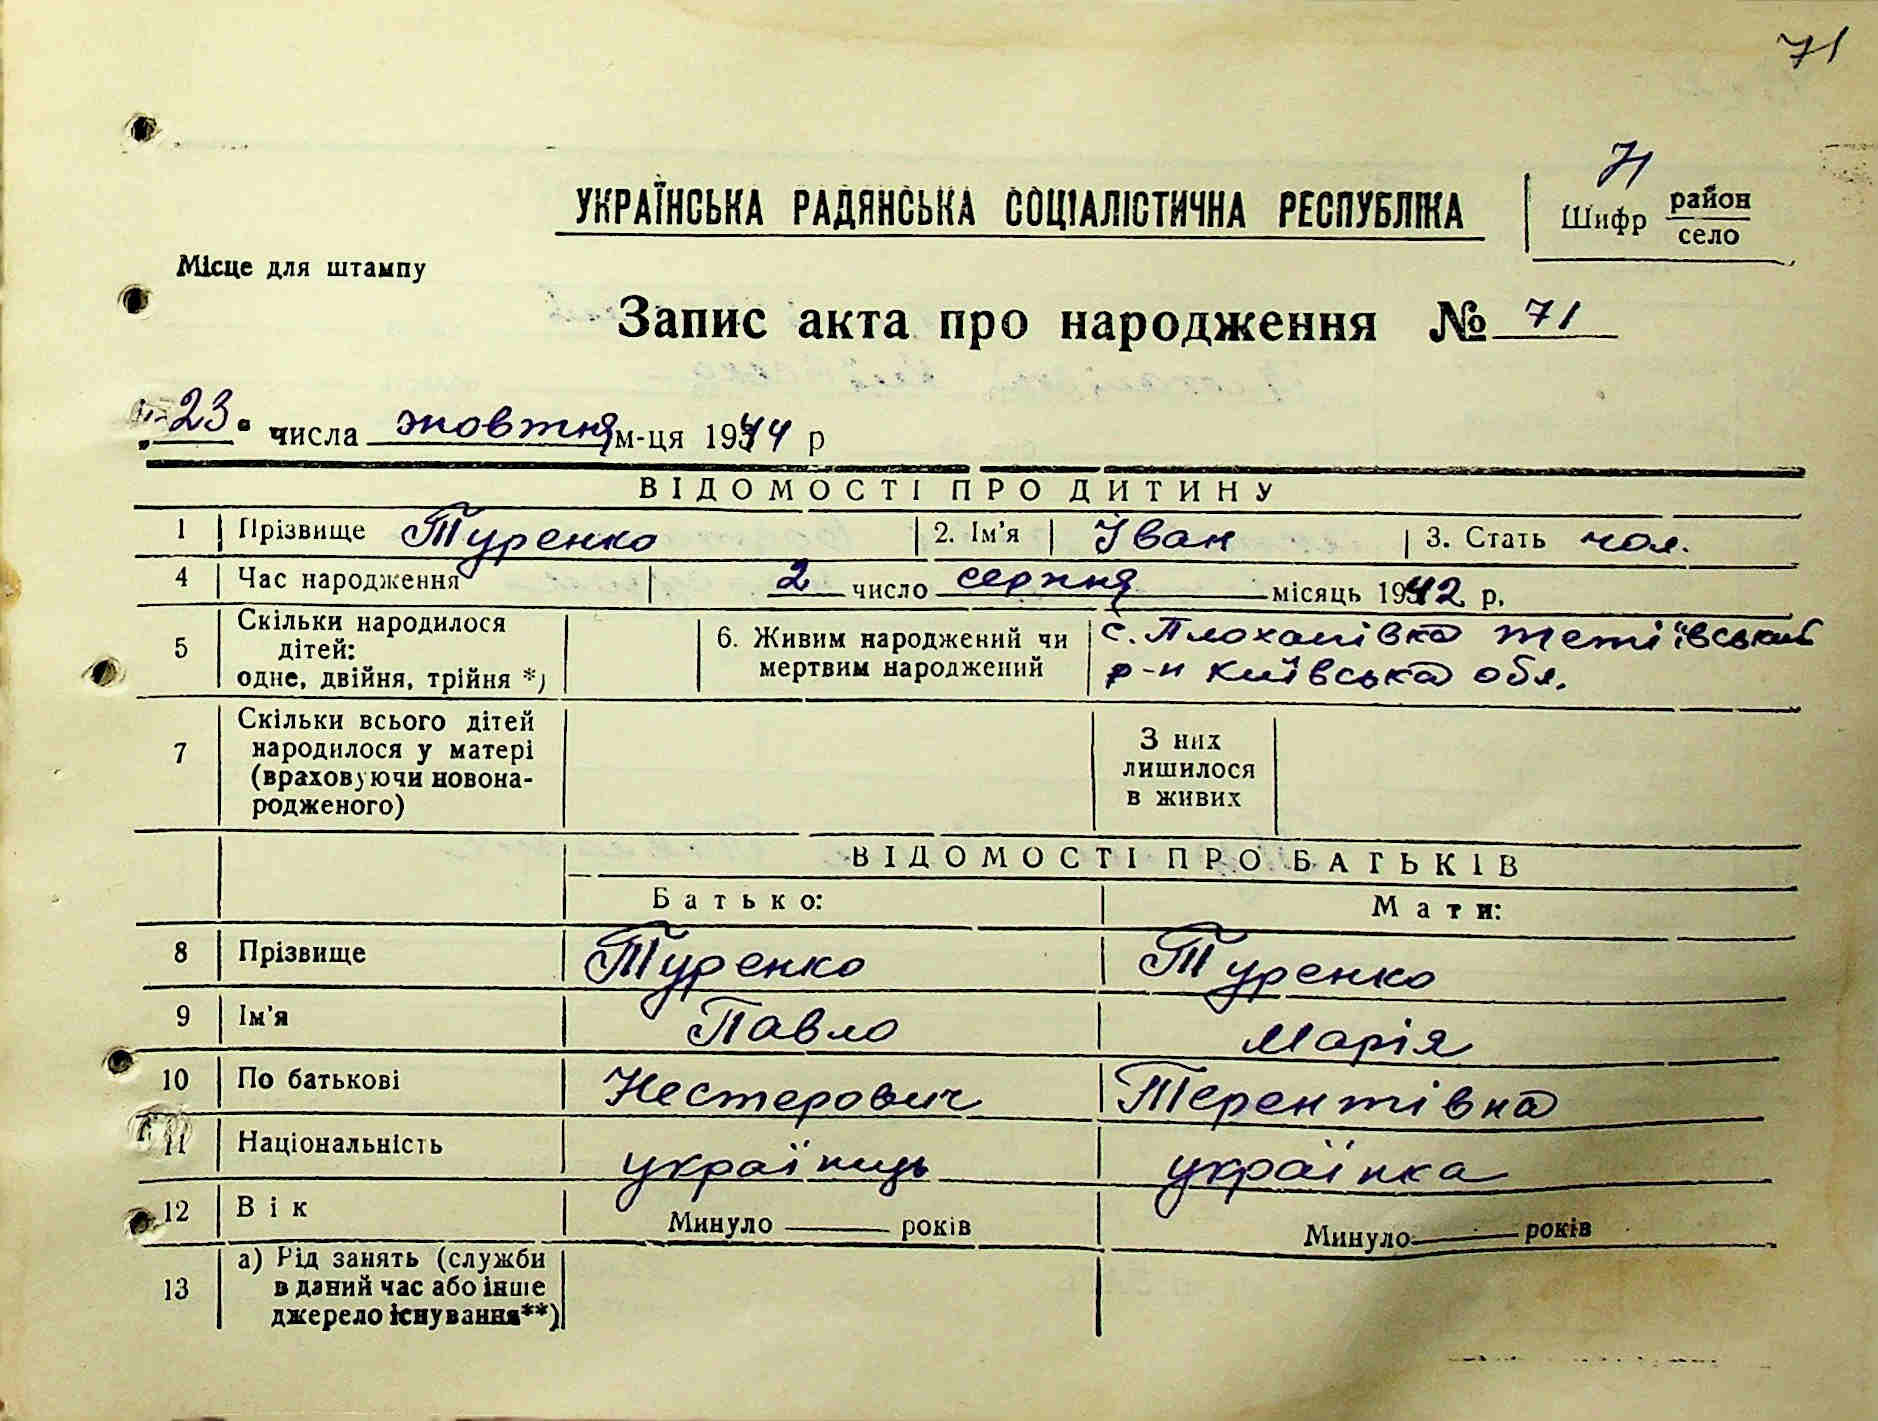 71
71
УКРАЇНСЬКА РАДЯНСЬКА СОЦІАЛІСТИЧНА РЕСПУБЛІКА
Шифр район
село
Місце для штампу
Запис акта про народження № 71
„23" числа жовтня м-ця 1944 р
ВІДОМОСТІ ПРО ДИТИНУ
1 Прізвище Туренко 2. Ім'я Іван 3. Стать чол.
4 Час народження 2 число серпня місяць 1942 р.
5 Скільки народилося
дітей:
одне, двійня, трійня *)
6. Живим народжений чи
мертвим народжений
с. Плоханівка тетіївський
р-н київська обл.
7 Скільки всього дітей
народилося у матері
(враховуючи новона-
родженого)
З них
лишилося
в живих
ВІДОМОСТІ ПРО БАТЬКІВ
Батько: Мати:
8 Прізвище Туренко Туренко
9 Ім'я Павло Марія
10 По батькові Нестерович Терентівна
11 Національність українць українка
12 Вік Минуло років Минуло років
13 а) Рід занять (служби
в даний час або інше
джерело існування**)